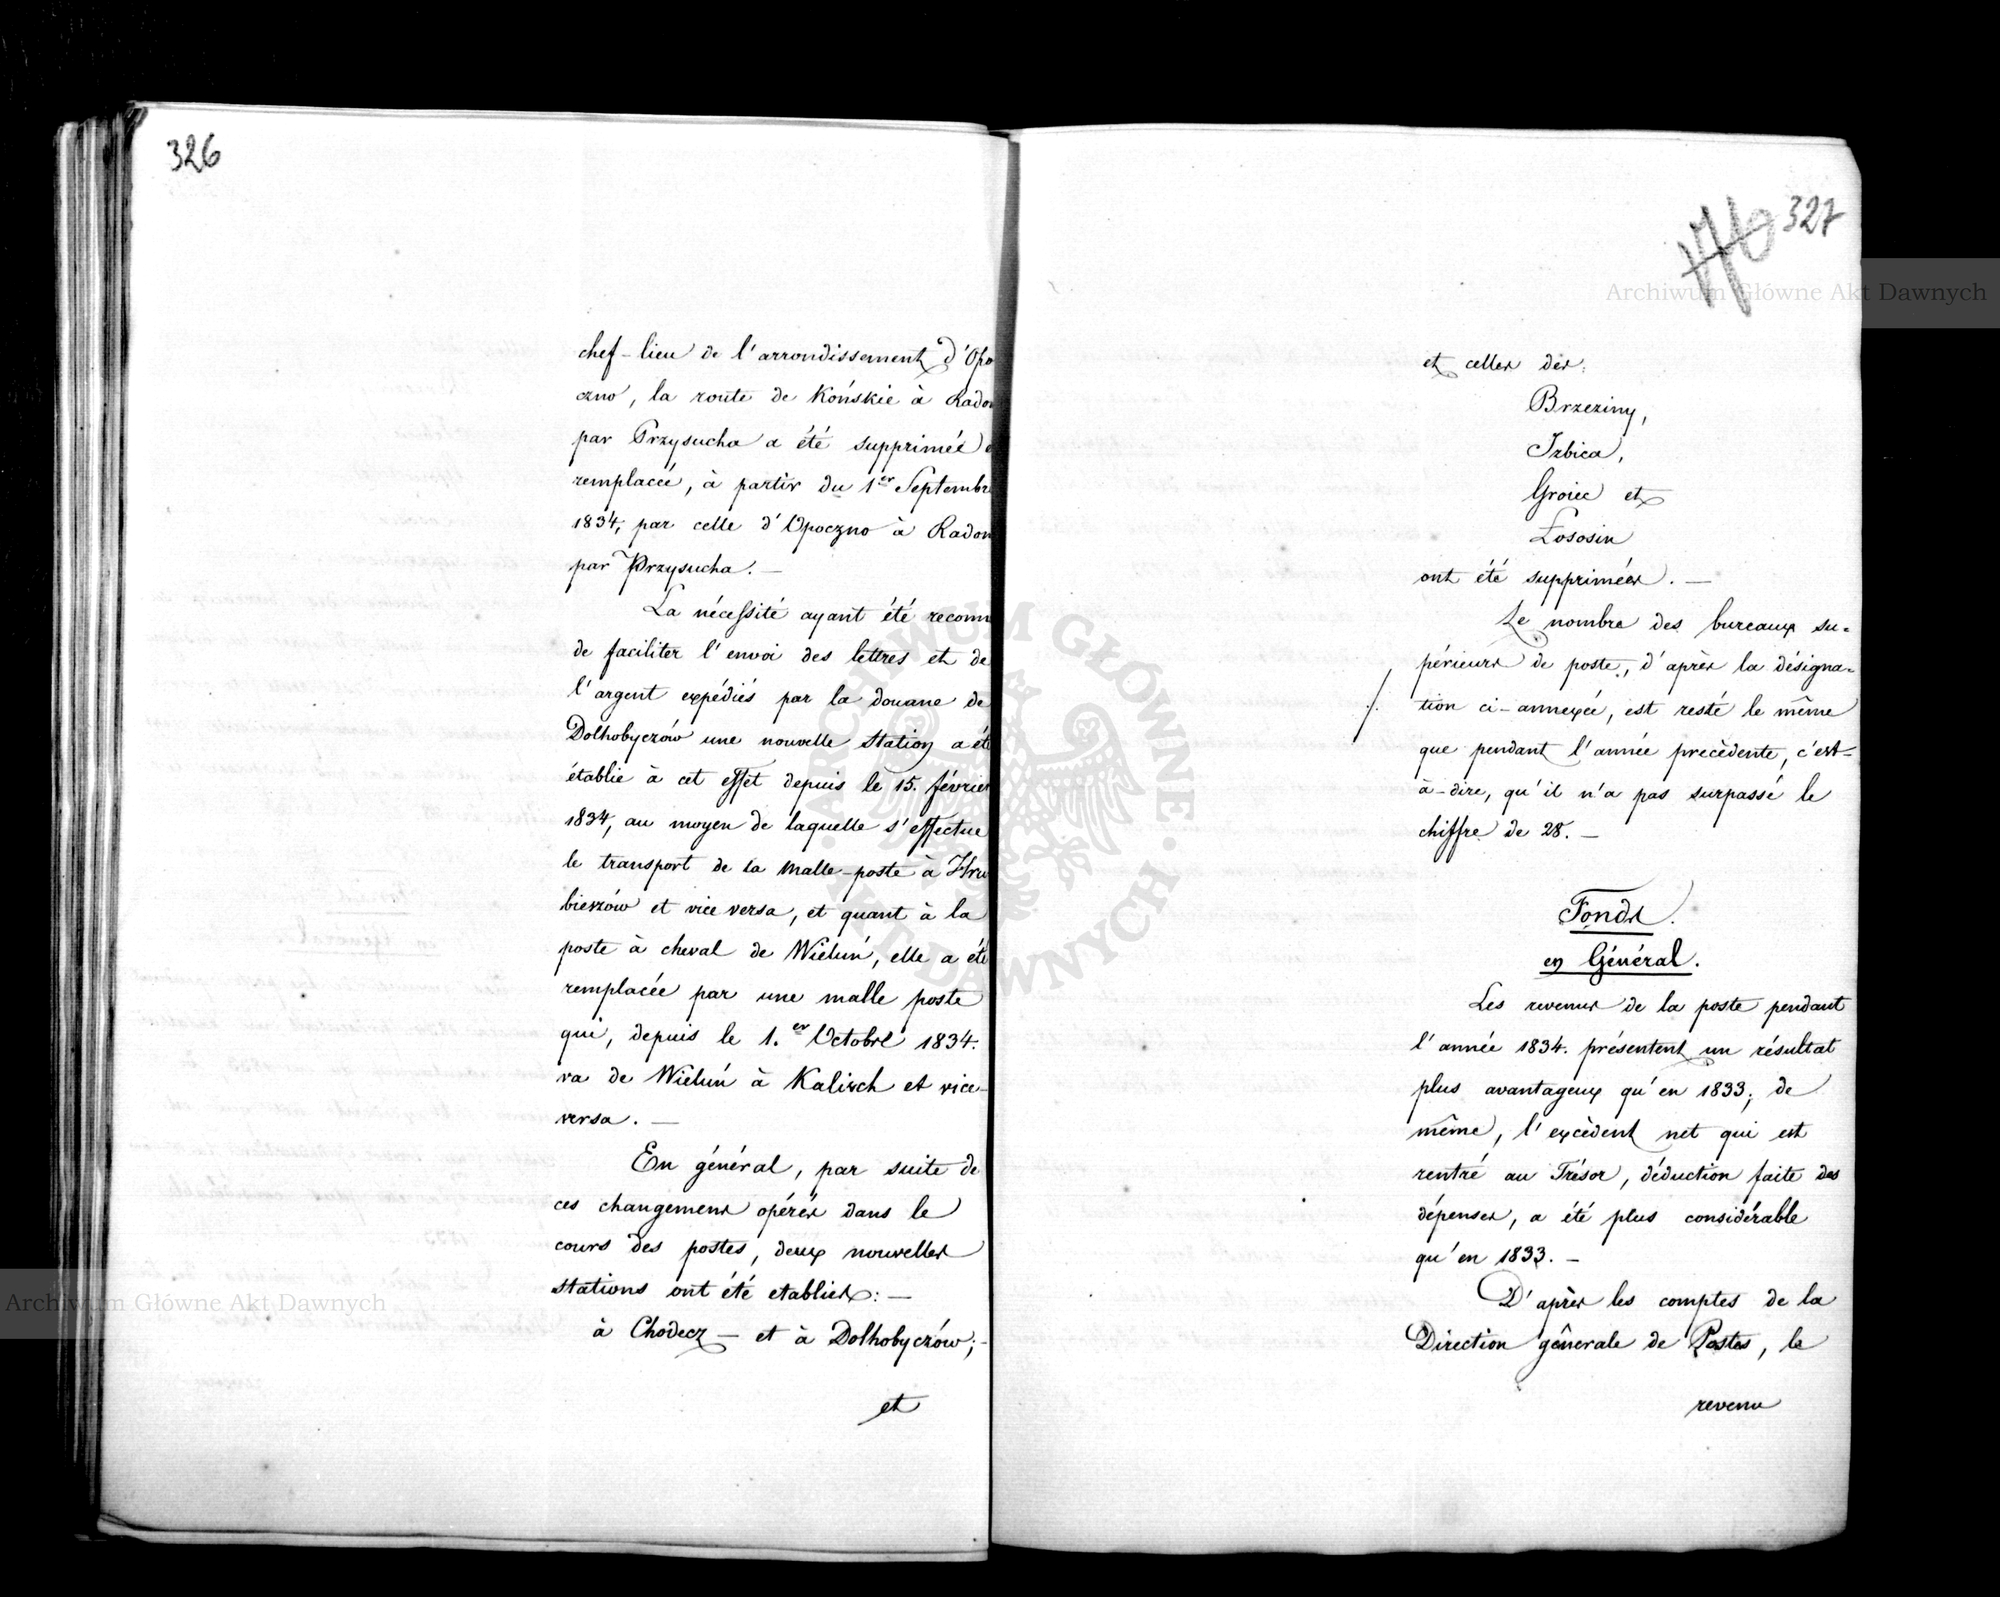 326
chef-lieu de l'arrondissement d'Opo
czno, la route de Końskie à Rado
par Przysucha a été supprimée
remplacée, à partir du 1er Septembre
1834, par celle d'Opoczno à Radom
par Przysucha. —
La nécessité ayant été reconn
de faciliter l'envoi des lettres et de
l'argent expédiés par la douane de
Dolhobyczów une nouvelle station a été
établie à cet effet depuis le 15. février
1834, au moyen de laquelle s'effectue
le transport de la malle-poste à Hru
bieszów et vice versa, et quant à la
poste à cheval de Wieluń, elle a été
remplacée par une malle poste
qui, depuis le 1.er Octobre 1834.
va de Wieluń à Kalisch et vice-
versa. —
En général, par suite de
ces changemens opérés dans le
cours des postes, deux nouvelles
stations ont été etablies: —
à Chodecz — et à Dolhobyczów; -
et
327
et celles des:
Brzeziny,
Izbica,
Groiec et
Łososin
ont été supprimées. —
Le nombre des bureaux su=
périeurs de poste, d'après la désigna=
tion ci-annexée, est resté le même
que pendant l'année precèdente, c'est-
à-dire, qu'il n'a pas surpassé le
chiffre de 28. —
Fonds.
en Général.
Les revenus de la poste pendant
l'année 1834. présentent un résultat
plus avantageux qu'en 1833; de
même, l'excèdent net qui est
rentré au Trésor, déduction faite des
dépenses, a été plus considérable
qu'en 1833. —
D'après les comptes de la
Direction génerale de Postes, le
revenu
Archiwum Główne Akt Dawnych
Archiwum Główne Akt Dawnych
ARCHIWUM GŁÓWNE AKT DAWNYCH